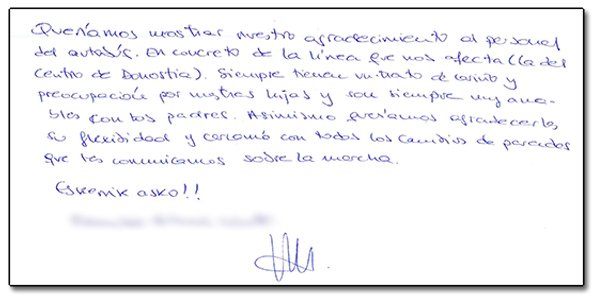 Queríamos mostrar nuestro agradecimiento al personal
del autobús. En concreto de la línea que nos afecta (la del
Centro de Donostia). Siempre tienen un trato de cariño y
preocupación por nuestras hijas y son siempre muy ama-
bles con los padres. Asimismo queríamos agradecerles
su flexibilidad y con todos los cambios de paradas
que les comunicamos sobre la marcha.
Eskerrik asko!!